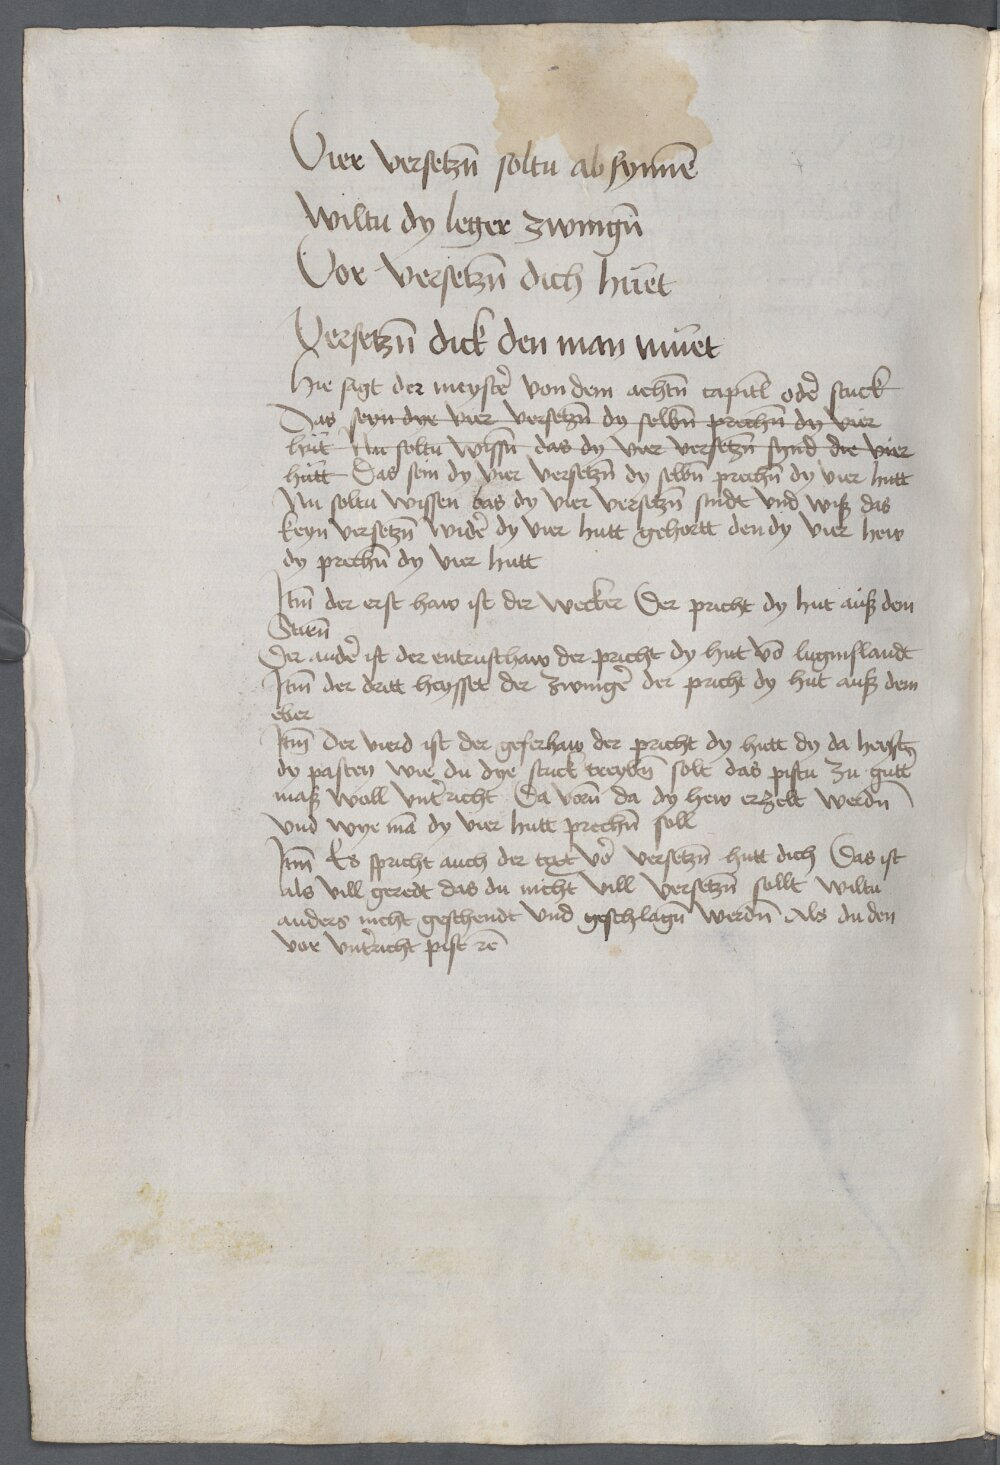 Vier versetzn̄ soltu absynnē
wiltu dy leger zwingn̄
Vor versetzn̄ dich hüet
Versetzn̄ dick den man müet
Hie sagt der meystẽ von dem achtn̄ capitl odẽ stuck
Das seyn dye vier versetzn̄ dy selbn̄ prechn̄ dy vier
hüt Nu soltu wissn̄ das dy vier versetzn̄ synd die vier
hütt Das sein dy vier versetzn̄ dy selbn̄ prechn̄ dy vier hutt
Nu soltu wissen das dy vier versetzn̄ sindt vnd wiß das
keyn versetzn̄ widẽ dy vier hutt gehortt den dy vier hew
dy prechn̄ dy vier hutt
Itm̄ der erst haw ist der wecker Der pricht dy hut auß dem
Stirn̄
Der andẽ ist der entrusthaw der pricht dy hut vō luginslandt
Itm̄ der dritt heysset der zwingẽ der pricht dy hut auß dem
eber
Itm̄ Der vierd ist der geferhaw der pricht dy hutt dy da heyst
dy pasten wie du dye stuck treybn̄ solt das pistu zu gutt
maß woll vntricht Da vorn̄ da dy hew erzelt werdn̄
vnd wye mā dy vier hutt prechn̄ soll
Itm̄ Es spricht auch der text vō versetzn̄ hutt dich Das ist
als vill geredt das du nicht vill versetzn̄ sollt wiltu
anders nicht geschendt vnd geschlagn̄ werdn̄ Als du den
vor vntricht pist rē